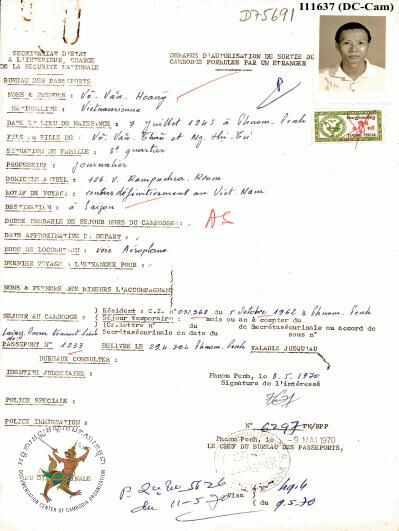 D75691
111637 (DC-Cam)
SECRETARIAT D'ETAT
A L'INTERIEUR, CHARGE
DE LA SECURITE NATIONALE
DEMANDE D'AUTORISATION DE SORTIE DU
CAMBODGE FORMULEE PAR UN ETRANGER
BUREAU DES PASSEPORTS
NOMS & PRENOMS : Võ Văn Hoang
NATIONALITE : Vietnamienne
DATE ET LIEU DE NAISSANCE : 7 Juillet 1943 à Phnom Penh
FILS ou FILLE DE : Võ Văn et Ng. Thi
SITUATION DE FAMILLE : 3è quartier
PROFESSION : Journalier
DOMICILE ACTUEL : 126. V. Kampuchea Krom
MOTIF DE VOYAGE : rentrer définitivement au Viet Nam
DESTINATION : à Saigon
DUREE PROBABLE DE SEJOUR HORS DU CAMBODGE :
DATE APPROXIMATIVE DU DEPART :
MODE DE LOCOMOTION : voie Aéroplane
DERNIER VOYAGE A L'ETRANGER POUR :
NOMS & PRENOMS DES MINEURS L'ACCOMPAGNANT
SEJOUR AU CAMBODGE : Résident : C.I. n° 031,368 du 5 Octobre 1962 à Phnom Penh
Séjour temporaire : mois ou an à compter du
(Cr.lettre n° du de Secrétaséeurinaire ou accord de
Secrétaséeurinaire en date du sous n°
PASSEPORT N° 1233 DELIVRE LE 29.4.70 à Phnom. Penh VALABLE JUSQU'AU
BUREAUX CONSULTES :
IDENTITE JUDICIAIRE :
Phnom Penh, le 8.5.1970
Signature de l'intéressé
POLICE SPECIALE :
POLICE IMMIGRATION :
N° 6297 PN/BPP
Phnom Penh, le -9 MAI 1970
LE CHEF DU BUREAU DES PASSEPORTS,
DOCUMENTATION CENTER OF CAMBODIA ORGANIZATION
du 11-5-70
Visa
du 9.5.70